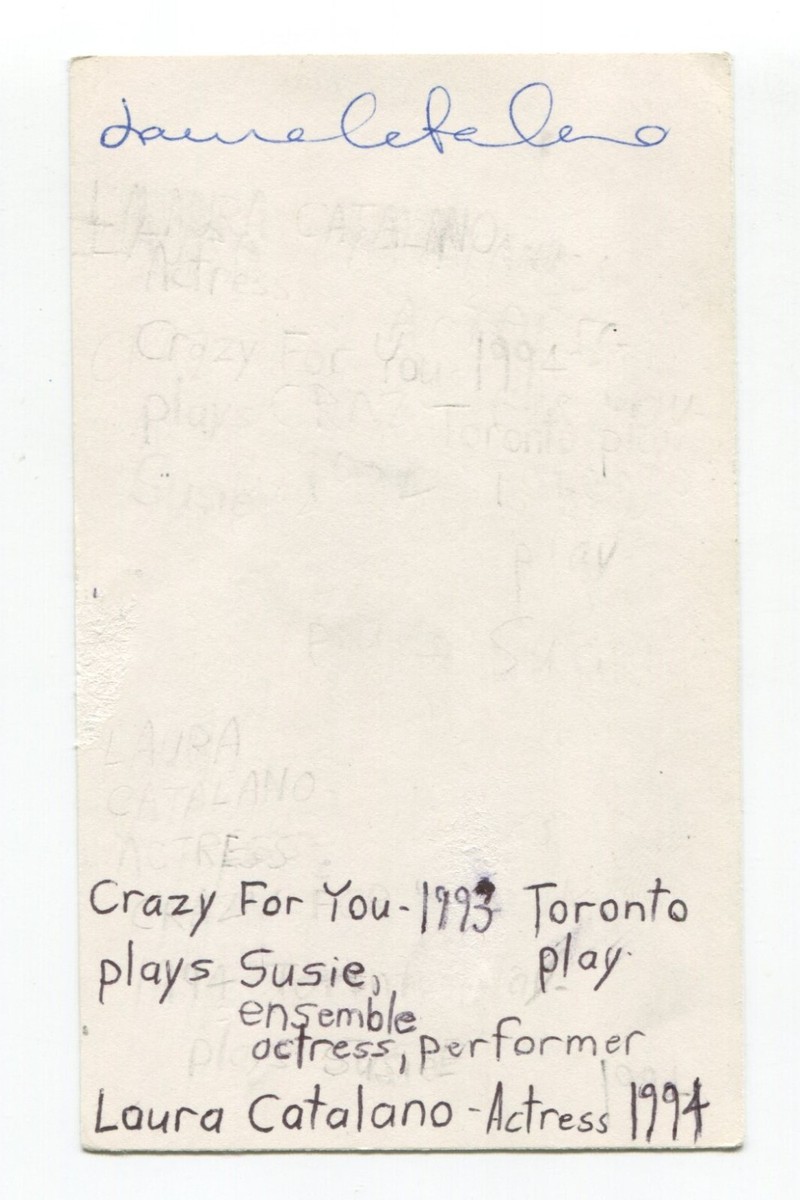 Laura Catalano
LAURA CATALANO
Actress
Crazy For You 1994
plays Toronto play
Susie
play
Susie
LAURA
CATALANO
ACTRESS
Crazy For You - 1993 Toronto
plays Susie, play.
ensemble
actress, performer
Laura Catalano - Actress 1994